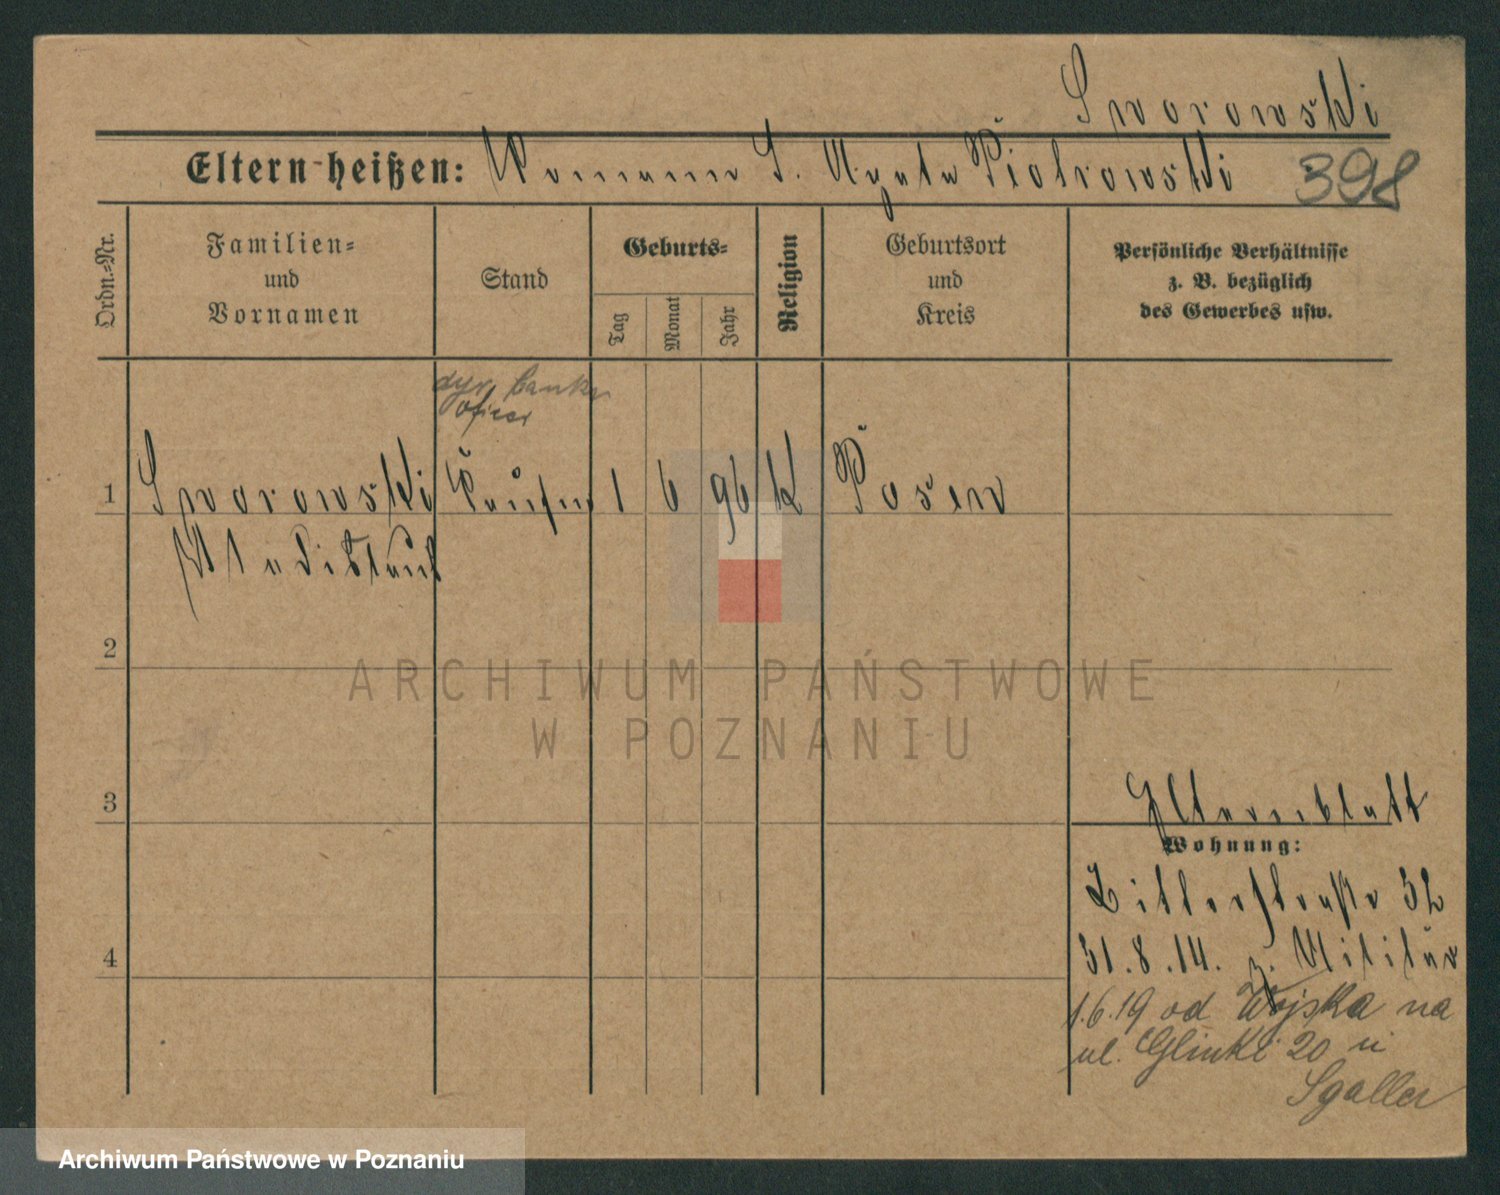 Sworowski
Eltern heißen: Roman u. S. Agata Piotrowski 398
Ordn.-Nr.
Familien-
und
Vornamen
Stand
Geburts-
Tag
Monat
Jahr
Religion
Geburtsort
und
Kreis
Persönliche Verhältnisse
z. B. bezüglich
des Gewerbes usw.
dyr. banku
oficer
1 Sworowski Kaufm 1 6 96 K Posen
Wladislaus
2
3
4
Elternblatt
Wohnung:
Ritterstraße 32
31.8.14. z. Militär
1.6.19 od Wojska na
ul. Glinki 20 u
Sgaller
ARCHIWUM PAŃSTWOWE
W POZNANIU
Archiwum Państwowe w Poznaniu